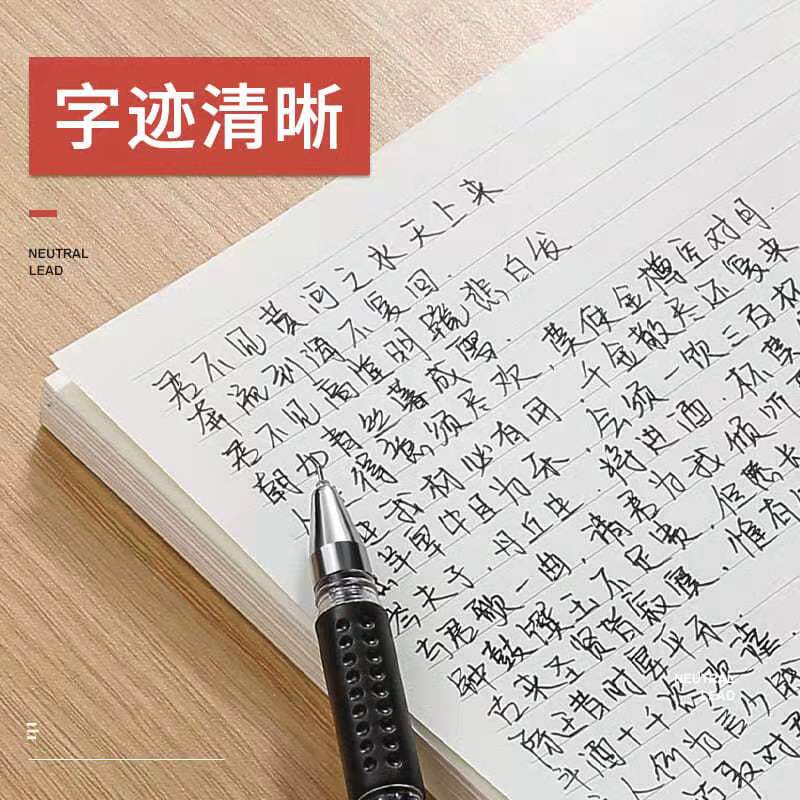 字迹清晰
NEUTRAL
LEAD
君不见黄河之水天上来
奔流到海不复回.
君不见高堂明镜悲白发
朝如青丝暮成雪.
得意须尽欢，莫使金樽空对月.
我材必有用.千金散尽还复来
羊宰牛且为乐，会须一饮三百杯
岑夫子.丹丘生.将进酒.杯莫
与君歌一曲，请君为我倾耳
钟鼓馔玉不足贵.但愿长
古来圣贤皆寂寞，惟有
陈王昔时宴平乐.
斗酒十千恣欢谑.
主人何为言少
取对君
NEUTRAL
LEAD